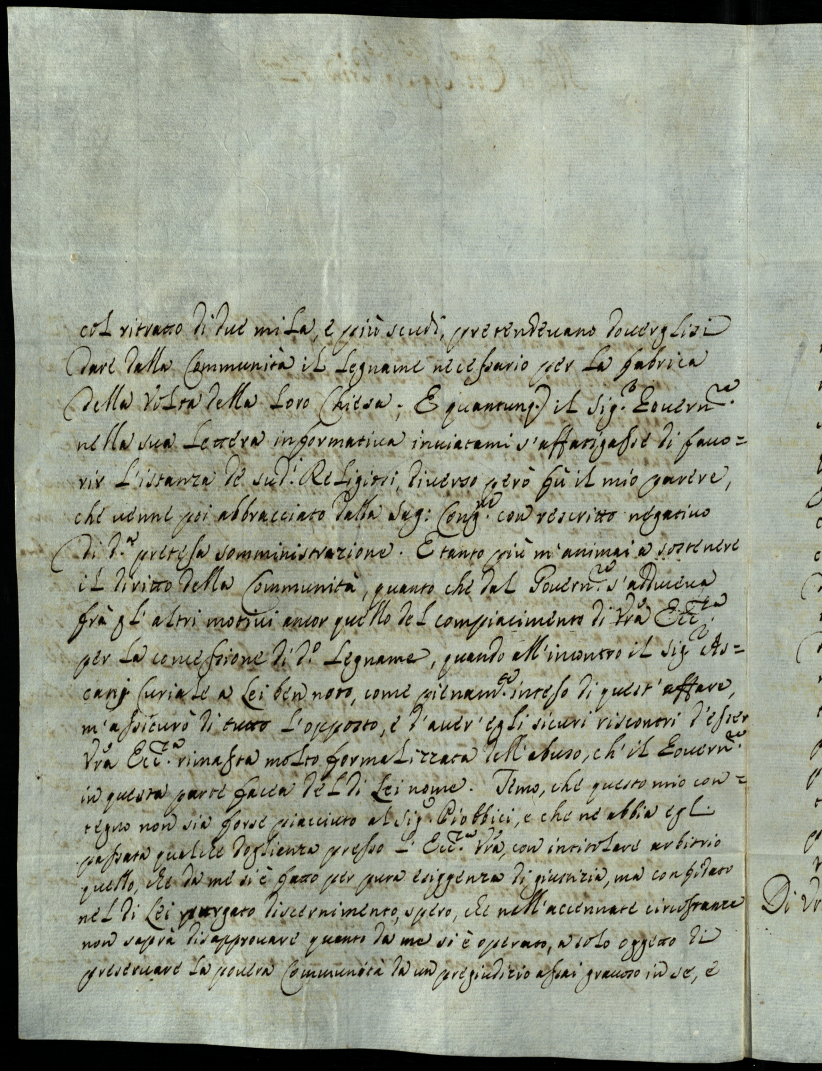 col ritratto di due mila, e più scudi, pretendevano doverglisi
dare dalla Communità il Legname necessario per la fabrica
della Volta della Loro Chiesa; E quantunq. il Sig.r Govern.re
nella sua Lettera informativa inviatami s'affatigasse di favo=
rir L'istanza de sud.i Religiosi, diverso però fù il mio parere,
che venne poi abbracciato dalla Sag: Cong.ne con rescritto negativo
di d.a pretesa somministrazione. E tanto più m'animai a sostenere
il diritto della Communità, quanto che dal Govern.re s'adduceva
frà gl'altri motivi ancor quello del compiacimento di Vrã Ecc.za
per la concessione di d.o Legname, quando all'incontro il Sig.r As=
canj Curiale a Lei ben noto, come pienam.te inteso di quest'affare,
m'assicurò di tutto l'opposto, e d'aver'egli sicuri riscontri d'esser
Vrã Ecc.za rimasta molto formalizzata dell'abuso, ch'il Govern.re
in questa parte facea del di Lei nome. Temo, che questo mio con=
tegno non sia forse piacciuto al Sig.r Piobbici, e che ne abbia egli
passata qualche doglienza presso l'Ecc.za Vrã, con intitolare arbitrio
quello, che da me si è fatto per pura esiggenza di giustizia, ma confidato
nel di Lei purgato discernimento, spero, che nell'accennate circostanze
non saprà disapprovare quanto da me si è operato, a solo oggetto di
preservare la povera Communità da un pregiudizio assai gravoso in se, e
Di Vr